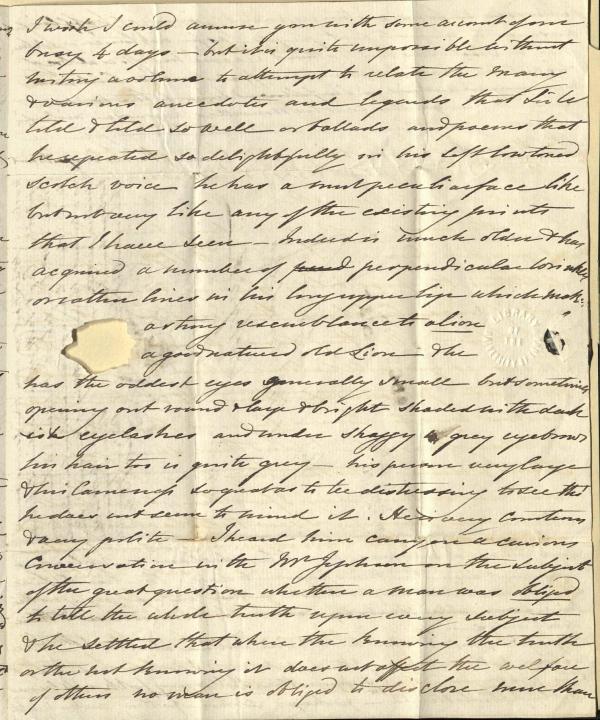 I wish I could amuse you with some account of our
busy 4 days – but it is quite impossible without
writing a volume to attempt to relate the many
& various anecdotes and legends that Sir
told & told so well or ballads and poems that
he repeated so delightfully in his soft low toned
Scotch voice he has a most peculiar face like
but not very like any of the existing prints
that I have seen – Indeed is much older & has
acquired a number of perpendicular wrinkles
or rather lines in his long upper lip which make
a strong resemblance to a lion
a good natured old Lion & he
has the oddest eyes generally small but sometimes
opening out round & large & bright shaded with dark
eyelashes and under shaggy grey eyebrows
his hair too is quite grey – his person very large
& his lameness so great as to be distressing to see tho'
he does not seem to mind it. He is very courteous
& very polite – I heard him carry on a curious
Conversation with Mr Jephson on the subject
of the great question whether a man was obliged
to tell the whole truth upon every subject
& he settled that where the knowing the truth
or the not knowing it does not affect the welfare
of others no man is obliged to disclose more than
LIBRARY